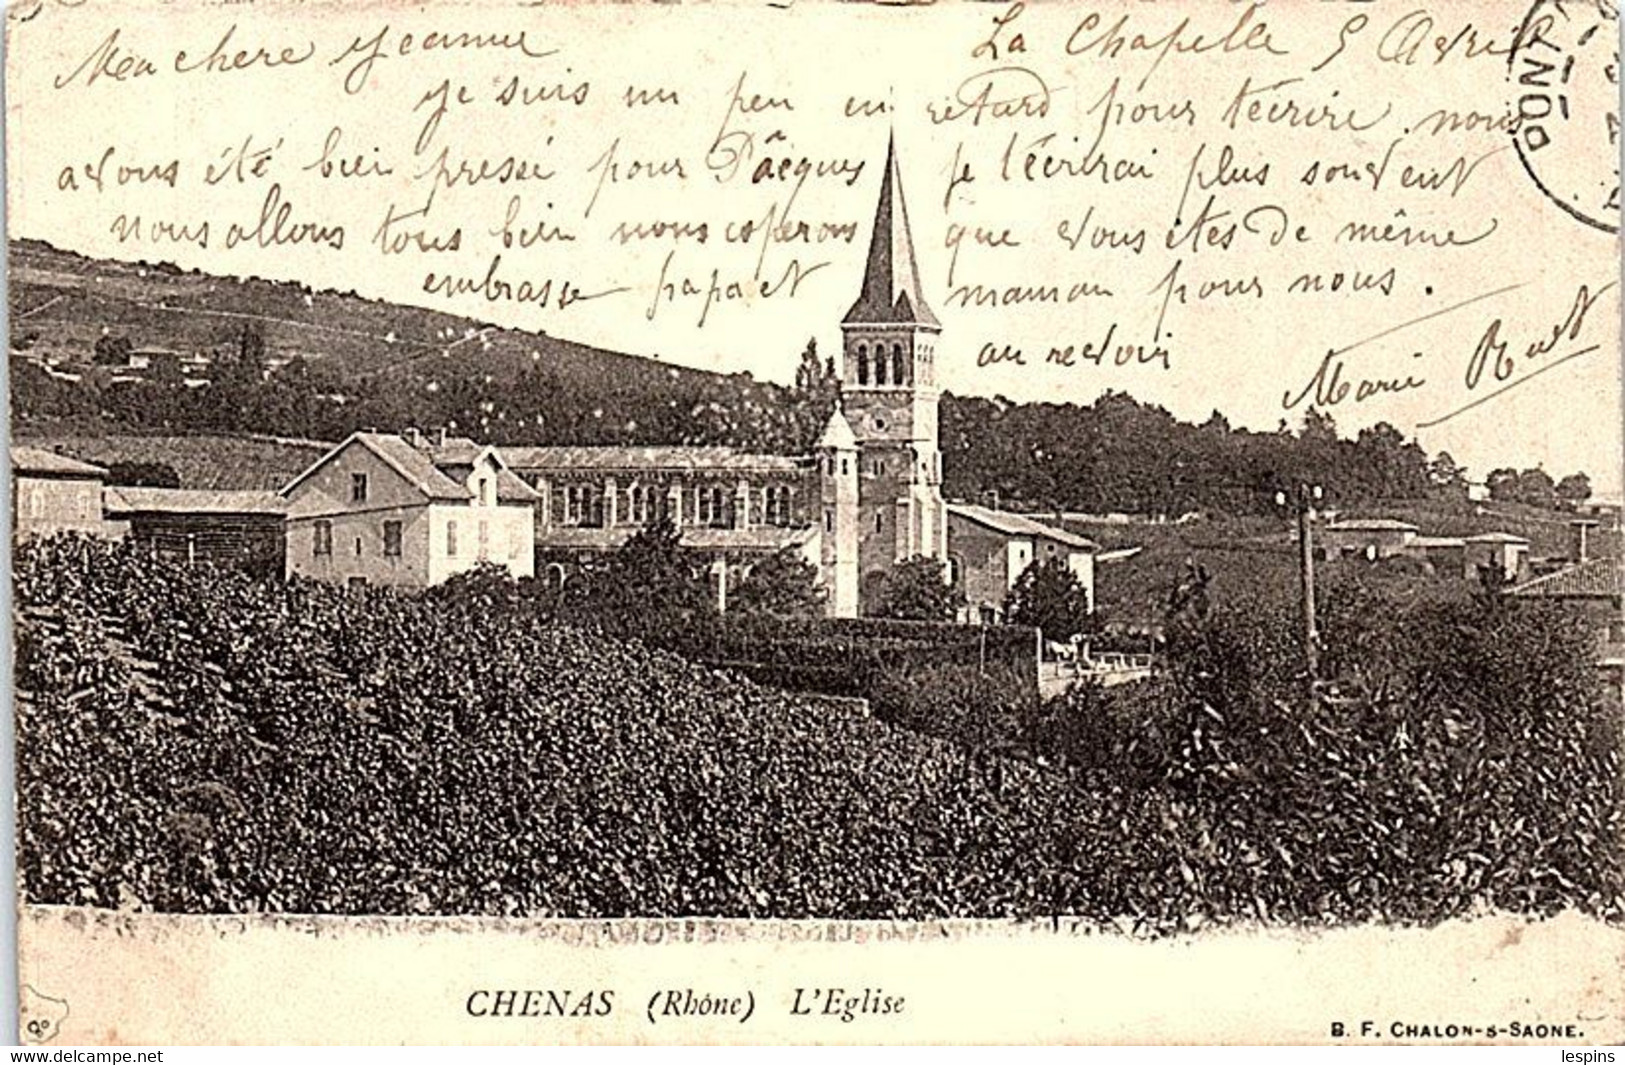 La Chapelle 5 Avril
Ma chere Jeanne
je suis un peu en retard pour técrire. nous
avons été bien pressé pour Pâcques je técrirai plus souvent
nous allons tous bien nous esperons que vous êtes de même
embrasse papa et maman pour nous.
au revoir
Marie
PONT
CHENAS (Rhône) L'Eglise
B. F. CHALON-S-SAONE.
© For sale on www.delcampe.net
lespins